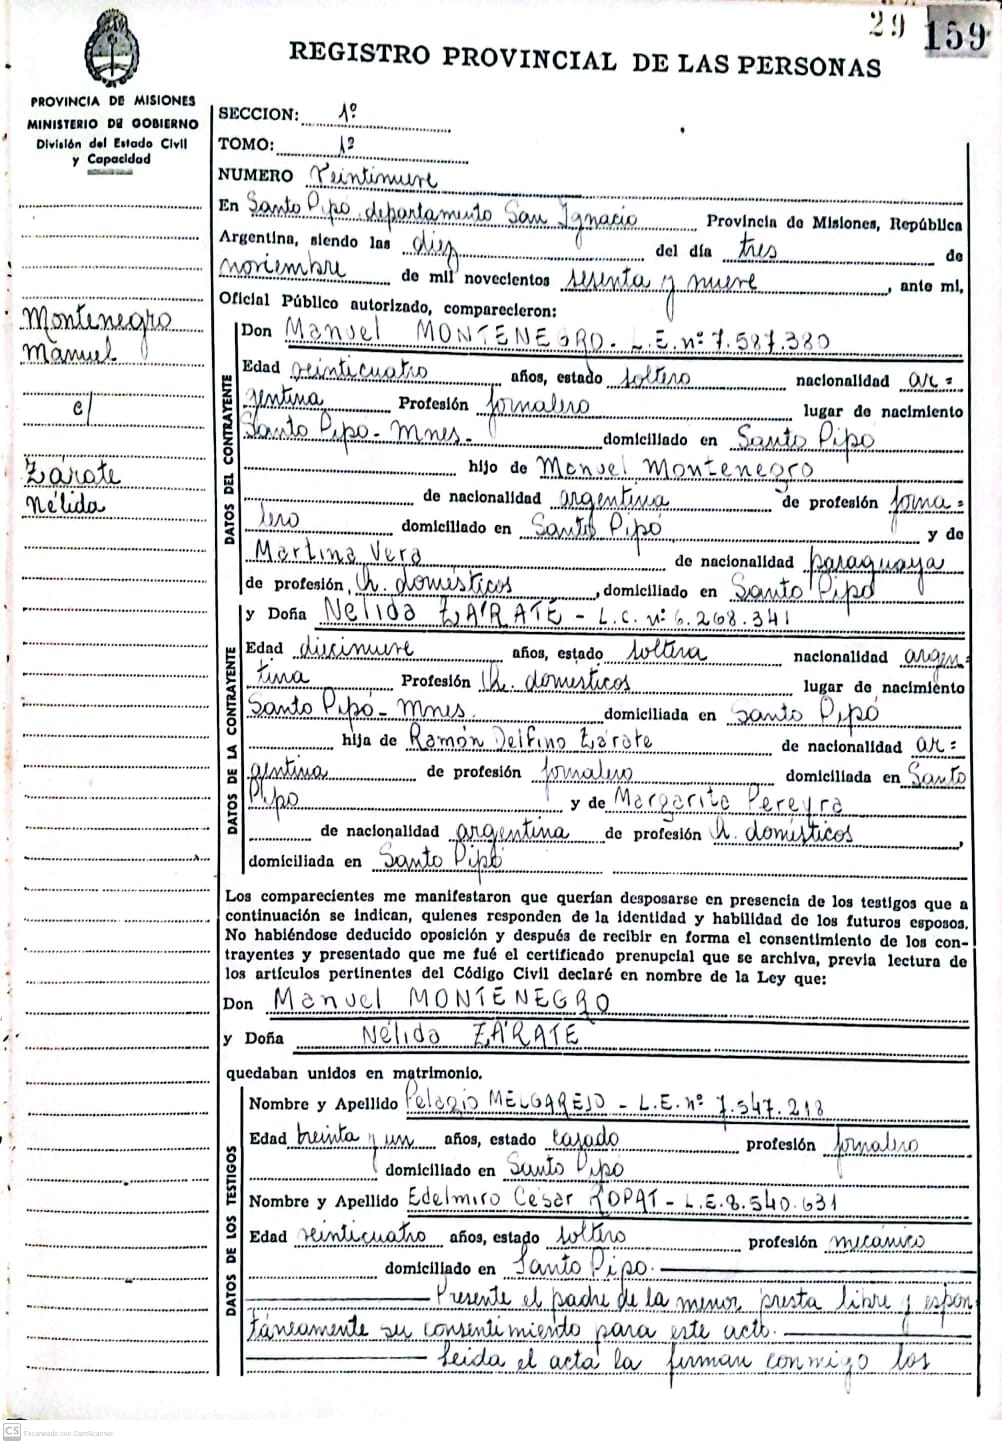 29 159
REGISTRO PROVINCIAL DE LAS PERSONAS
PROVINCIA DE MISIONES
MINISTERIO DE GOBIERNO
División del Estado Civil
y Capacidad
Montenegro
Manuel
c/
Zárate
Nélida
SECCION: 1º
TOMO: 1º
NUMERO Veintinueve
En Santo Pipó departamento San Ignacio Provincia de Misiones, República
Argentina, siendo las diez del día tres de
noviembre de mil novecientos sesenta y nueve, ante mí,
Oficial Público autorizado, comparecieron:
DATOS DEL CONTRAYENTE
Don Manuel MONTENEGRO. L.E. nº 7.587.380
Edad veinticuatro años, estado soltero nacionalidad ar=
gentina Profesión jornalero lugar de nacimiento
Santo Pipó - Mnes. domiciliado en Santo Pipó
hijo de Manuel Montenegro
de nacionalidad argentina de profesión jorna=
lero domiciliado en Santo Pipó y de
Martina Vera de nacionalidad paraguaya
de profesión, Q. domésticos, domiciliado en Santo Pipó
DATOS DE LA CONTRAYENTE
y Doña Nélida ZÁRATE - L.C. nº 6.268.341
Edad diecinueve años, estado soltera nacionalidad argen=
tina Profesión Q. domésticos lugar de nacimiento
Santo Pipó - Mnes. domiciliada en Santo Pipó
hija de Ramón Delfino Zárate de nacionalidad ar=
gentina de profesión jornalero domiciliada en Santo
Pipó y de Margarita Pereyra
de nacionalidad argentina de profesión Q. domésticos,
domiciliada en Santo Pipó
Los comparecientes me manifestaron que querían desposarse en presencia de los testigos que a
continuación se indican, quienes responden de la identidad y habilidad de los futuros esposos.
No habiéndose deducido oposición y después de recibir en forma el consentimiento de los con-
trayentes y presentado que me fué el certificado prenupcial que se archiva, previa lectura de
los artículos pertinentes del Código Civil declaré en nombre de la Ley que:
Don Manuel MONTENEGRO
y Doña Nélida ZÁRATE
quedaban unidos en matrimonio.
DATOS DE LOS TESTIGOS
Nombre y Apellido Pelagio MELGAREJO - L.E. nº 7.547.218
Edad treinta y un años, estado casado profesión jornalero
domiciliado en Santo Pipó
Nombre y Apellido Edelmiro César ROPAT - L.E. 8.540.631
Edad veinticuatro años, estado soltero profesión mecánico
domiciliado en Santo Pipó.
Presente el padre de la menor presta libre y espon
táneamente su consentimiento para este acto.
Leida el acta la firman conmigo los
CS Escaneado con CamScanner